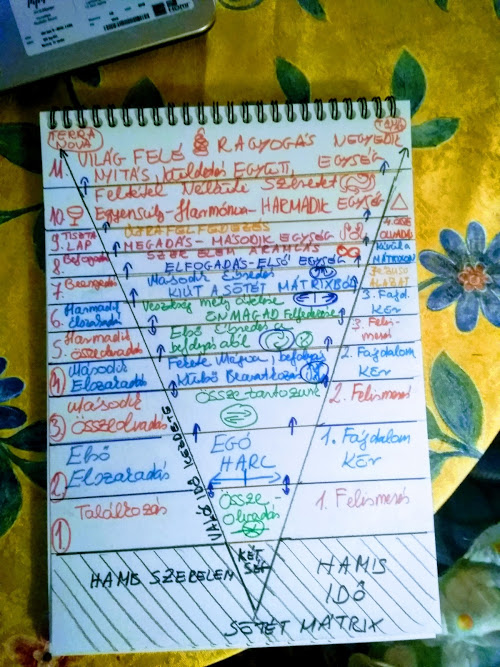 TERRA NOVA
11. VILÁG FELÉ RAGYOGÁS NEGYEDIK
NYITÁS, küldetés EGYÜTT, EGYSÉG
Feltétel Nélküli Szeretet
10. Egyensúly-Harmónia- HARMADIK EGYSÉG
9. TISZTA ÚJRAFELFEDEZÉS
LAP MEGADÁS- MÁSODIK EGYSÉG
SZERELEM ÁRAMLÁS
8. Befogadás ELFOGADÁS-ELSŐ EGYSÉG
7. Második Ébredés
KIÚT A SÖTÉT MÁTRIXBÓL
ALÁZAT
6. Harmadik Elszakadás Veszteség mély átélése
ÖNMAGAD Felfedezése
3. Fájd. KÖR
5. Harmadik Összeolvadás Első Ébredés a befolyás alól
3. Felismerés
4. Második Elszakadás Fekete Mágia, befolyás
Külső Beavatkozás
2. Fájdalom KÖR
3. Második Összeolvadás Össze tartozunk
2. Felismerés
2. Első Elszakadás EGÓ HARC
1. Fájdalom KÖR
1. Találkozás Összeolvadás
1. Felismerés
VALÓ IDŐ KEZDETE
HAMIS SZERELEM
KÉTSÉG
HAMIS IDŐ
SÖTÉT MÁTRIX